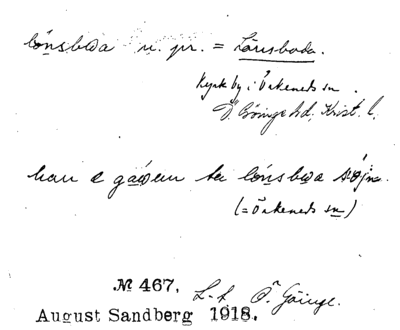 lónsbωa n. pr. = Lönsboda.
Kyrkby i Örkeneds sn.
Ö. Göinge hd, Krist. l.
han e gáωen te lónsbωa
(= Örkeneds sn)
№ 467. L-t Ö. Göinge.
August Sandberg 1918.